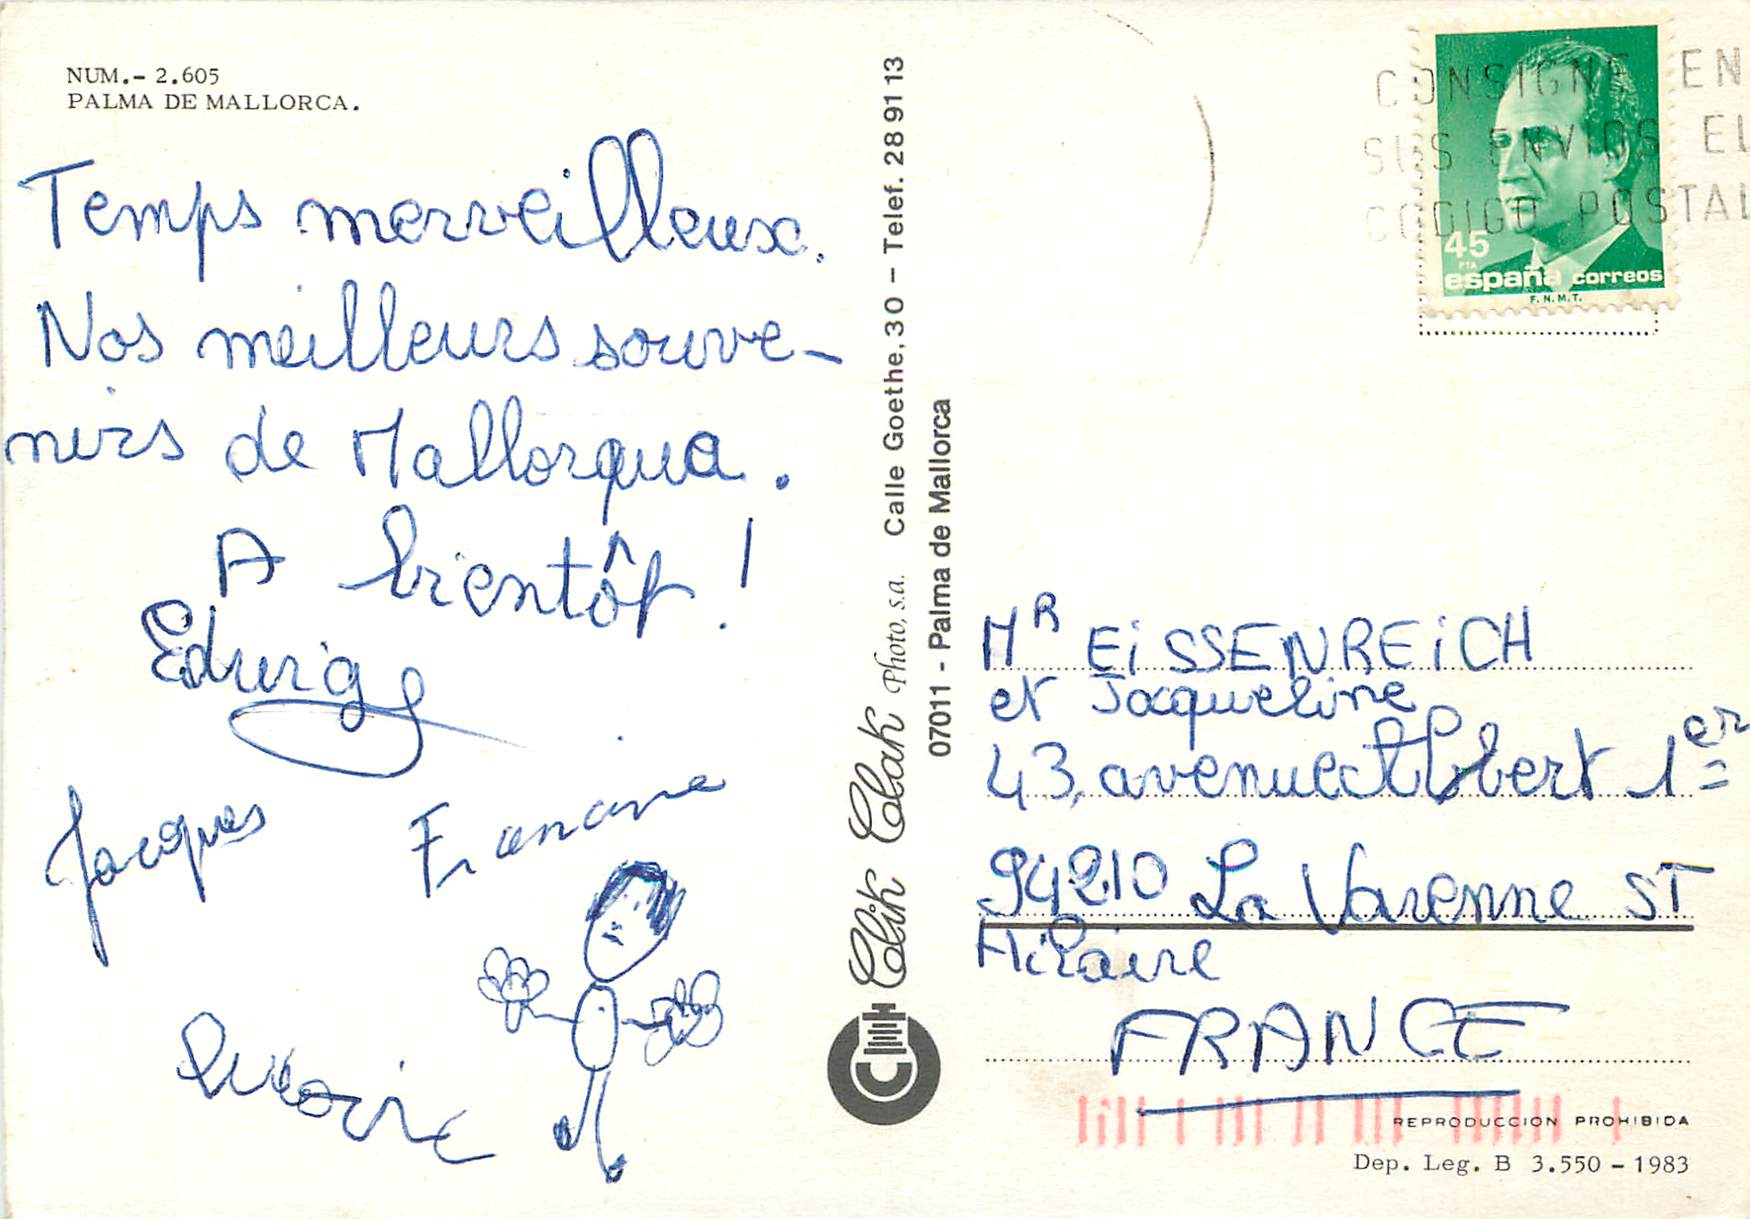 NUM.- 2.605
PALMA DE MALLORCA.
Temps merveilleux.
Nos meilleurs souve-
nirs de Mallorqua.
A bientôt !
Edwige
Jacques
Francine
Clik Clak Photo, s.a. Calle Goethe, 30 – Telef. 28 91 13
07011 - Palma de Mallorca
CONSIGNE EN
SUS ENVIOS EL
CODIGO POSTAL
45
PTA
españa correos
F.N.M.T.
MR EiSSENREiCH
et Jacqueline
43, avenue Albert 1er
94210 La Varenne ST
Hilaire
FRANCE
REPRODUCCION PROHIBIDA
Dep. Leg. B 3.550 – 1983